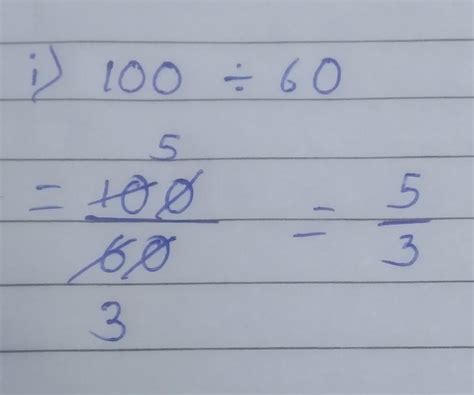 i) 100 ÷ 60
5
= 100/60 = 5/3
3